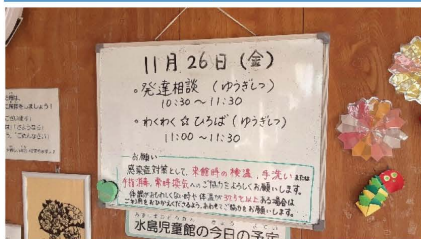 11月26日（金）
・発達相談（ゆうぎしつ）
10:30～11:30
・わくわく☆ひろば（ゆうぎしつ）
11:00～11:30
お願い
感染症対策として、来館時の検温、手洗いまたは
手指消毒、常時換気へのご協力をよろしくお願いします。
体調がおもわしくない時や体温が37.5℃以上ある場合は
ご利用をおひかえくださるよう、あわせてご協力をお願いします。
水島児童館の今日の予定